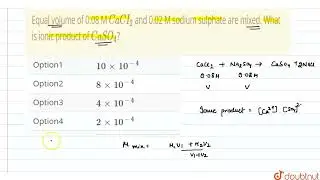 Equal volume of 0.08 M CaCl₂ and 0.02 M sodium sulphate are mixed. What
is ionic product of CaSO₄?
Option1 10 × 10⁻⁴
Option2 8 × 10⁻⁴
Option3 4 × 10⁻⁴
Option4 2 × 10⁻⁴
CaCl₂ + Na₂SO₄ → CaSO₄ + 2NaCl
0.08M 0.02M
V V
Ionic product = [Ca²⁺]
M mix = M₁V₁ + M₂V₂
V₁+V₂
doubtnut